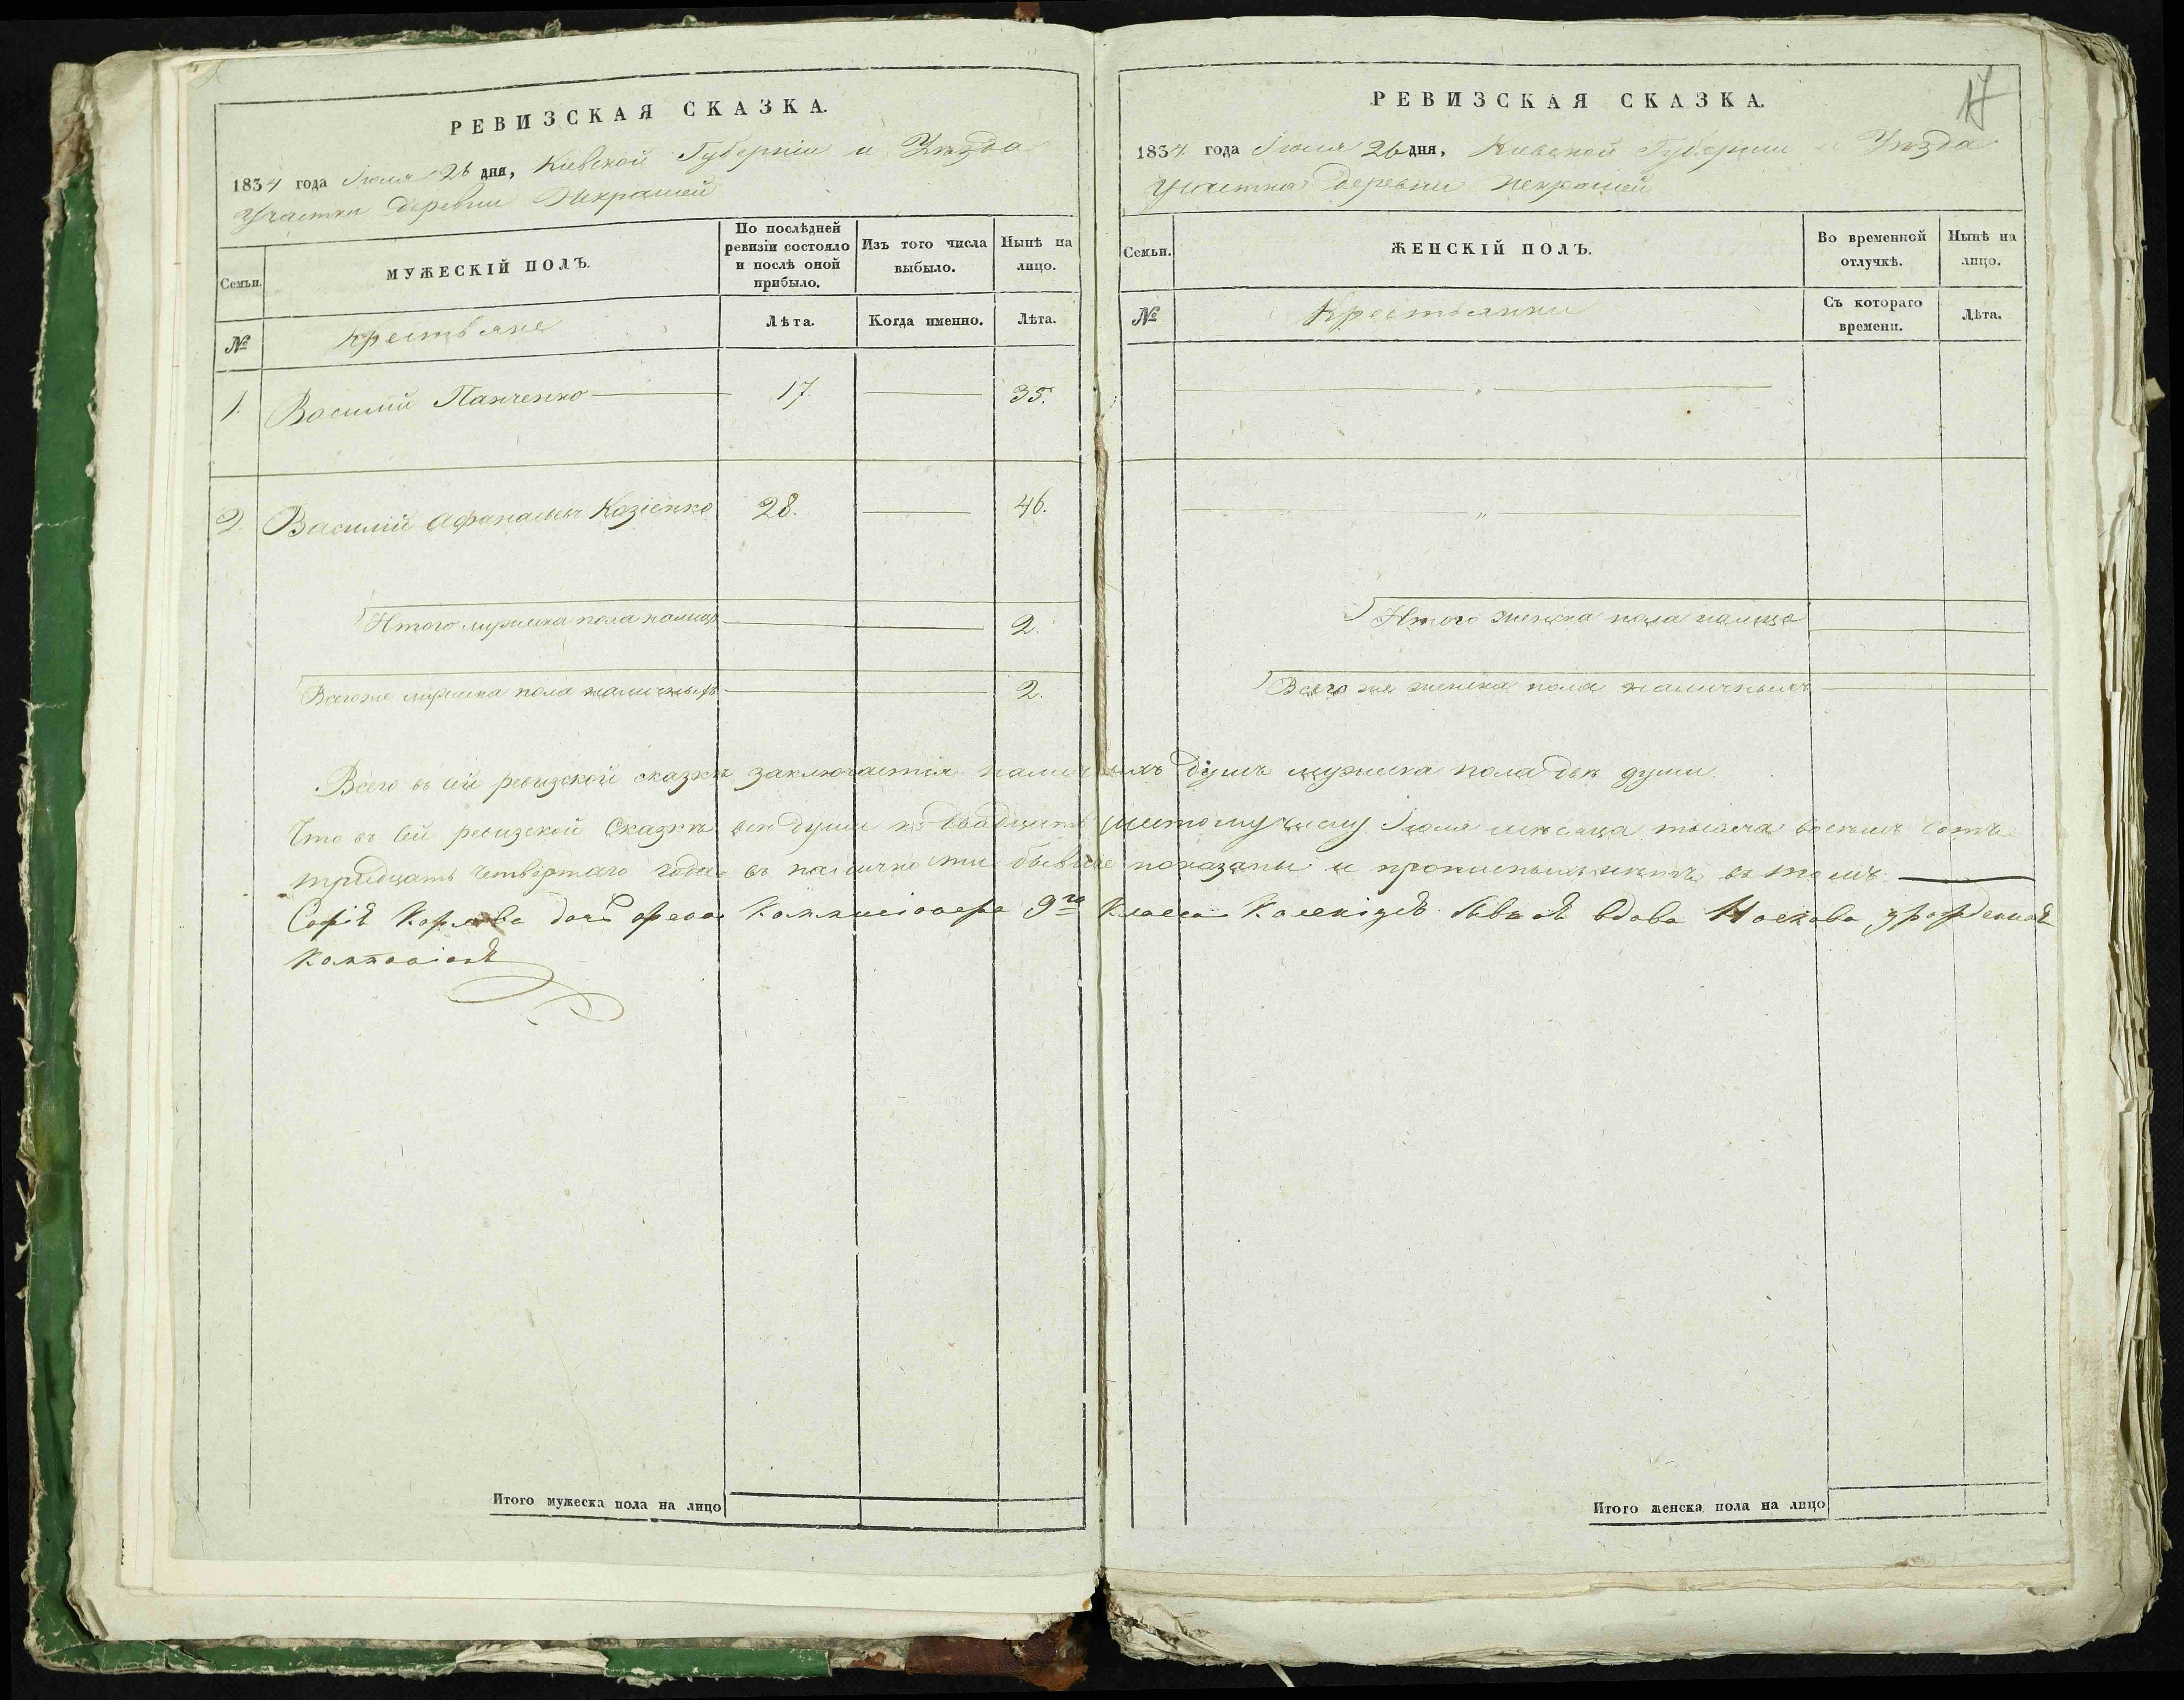 РЕВИЗСКАЯ СКАЗКА.
1834 года Іюля 26 дня, Кіевской Губерніи и Уѣзда
Участки деревни Некрашей
Семьи. МУЖЕСКІЙ ПОЛЪ. По послѣдней ревизіи состояло и послѣ оной прибыло. Изъ того числа выбыло. Нынѣ на лицо.
№ Крестьяне Лѣта. Когда именно. Лѣта.
1. Василий Панченко 17. 35.
2. Василий Афанасьев Казіенко 28. 46.
Итого мужеска пола налицо 2.
Всего же мужеска пола наличныхъ 2.
17
РЕВИЗСКАЯ СКАЗКА.
1834 года Іюля 26 дня, Кіевской Губерніи и Уѣзда
Участка деревни Некрашей
Семьи. ЖЕНСКІЙ ПОЛЪ. Во временной отлучкѣ. Нынѣ на лицо.
№ Крестьянки Съ котораго времени. Лѣта.
Итого женска пола налицо
Всего же женска пола наличныхъ
Всего въ сей ревизской сказкѣ заключается наличныхъ душъ мужеска пола двѣ души.
Что въ сей ревизской Сказкѣ всѣ души къ двадцать шестому числу Іюля мѣсяца тысяча восемь сотъ
тридцать четвертаго года въ наличности бывшіе показаны и прописныхъ нѣтъ въ томъ
Софія дочь Коммисіонера 9го Класса вдова
Итого мужеска пола на лицо
Итого женска пола на лицо